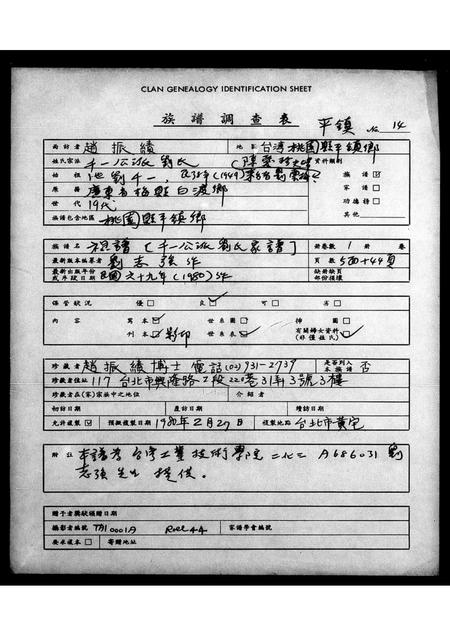 CLAN GENEALOGY IDENTIFICATION SHEET
族譜調查表 平鎮 No 14
面訪者 趙振績 地區 台灣桃園縣平鎮鄉
姓氏家派 千一公派劉氏 資料類別
始祖 劉千一 族譜
原籍 廣東省梅縣白渡鄉 家譜
世代 19代 功德榜
族譜包含地區 桃園縣平鎮鄉 其他
族譜名 祖譜〔千一公派劉氏家譜〕 卷數 1 冊 卷
最新版本編纂者 劉志強 頁數 500+44頁
最新出版年份或年段日期 民國六十九年(1980)年 缺冊缺頁部份損壞
保管狀況 優 良 可 劣
內容 寫本 世系圖 插圖
刊本 影印 世系表 有關婦女資料(非僅姓氏)
珍藏者 趙振績博士 電話(02)931-2739 是否列入本族譜 否
珍藏者住址 117 台北市興隆路二段221巷31弄3號3樓
珍藏者在(家)宗族中之地位 介紹者
初訪日期 再訪日期 續訪日期
允許複製 預擬複製日期 1980年2月27日 複製地點 台北市黃宅
附註 本譜為台灣工業技術學院二化三 A686031 劉
志強先生提供。
贈予者獎狀頒贈日期
攝影者編號 TAI 0001A Roll 44 家譜學會編號
要求複本 寄贈地址